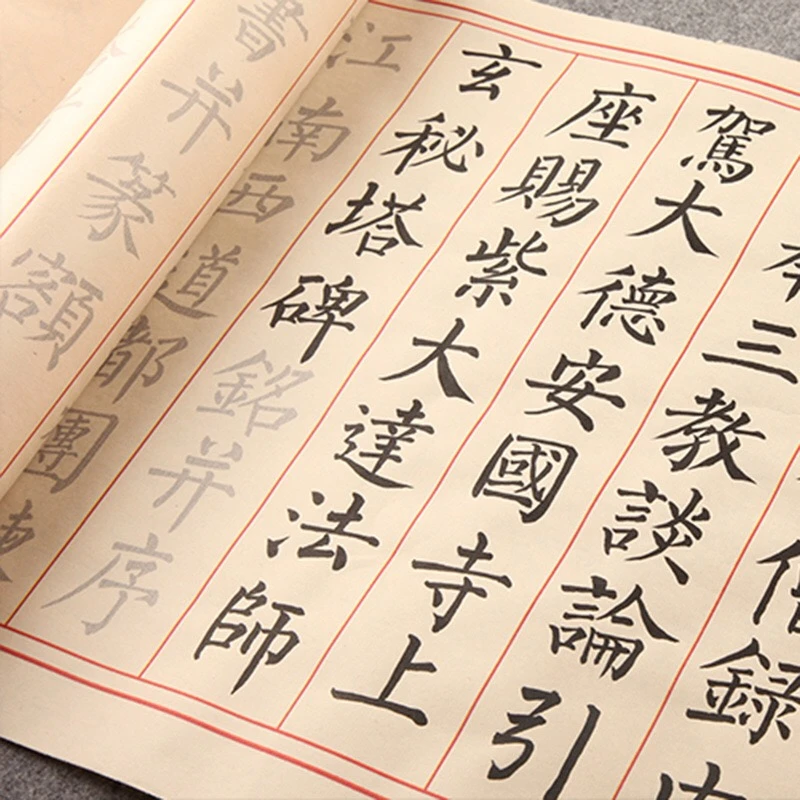 僧錄內
奉三教談論引
駕大德安國寺上
座賜紫大達法師
玄秘塔碑銘并序
江南西道都團
書并篆額